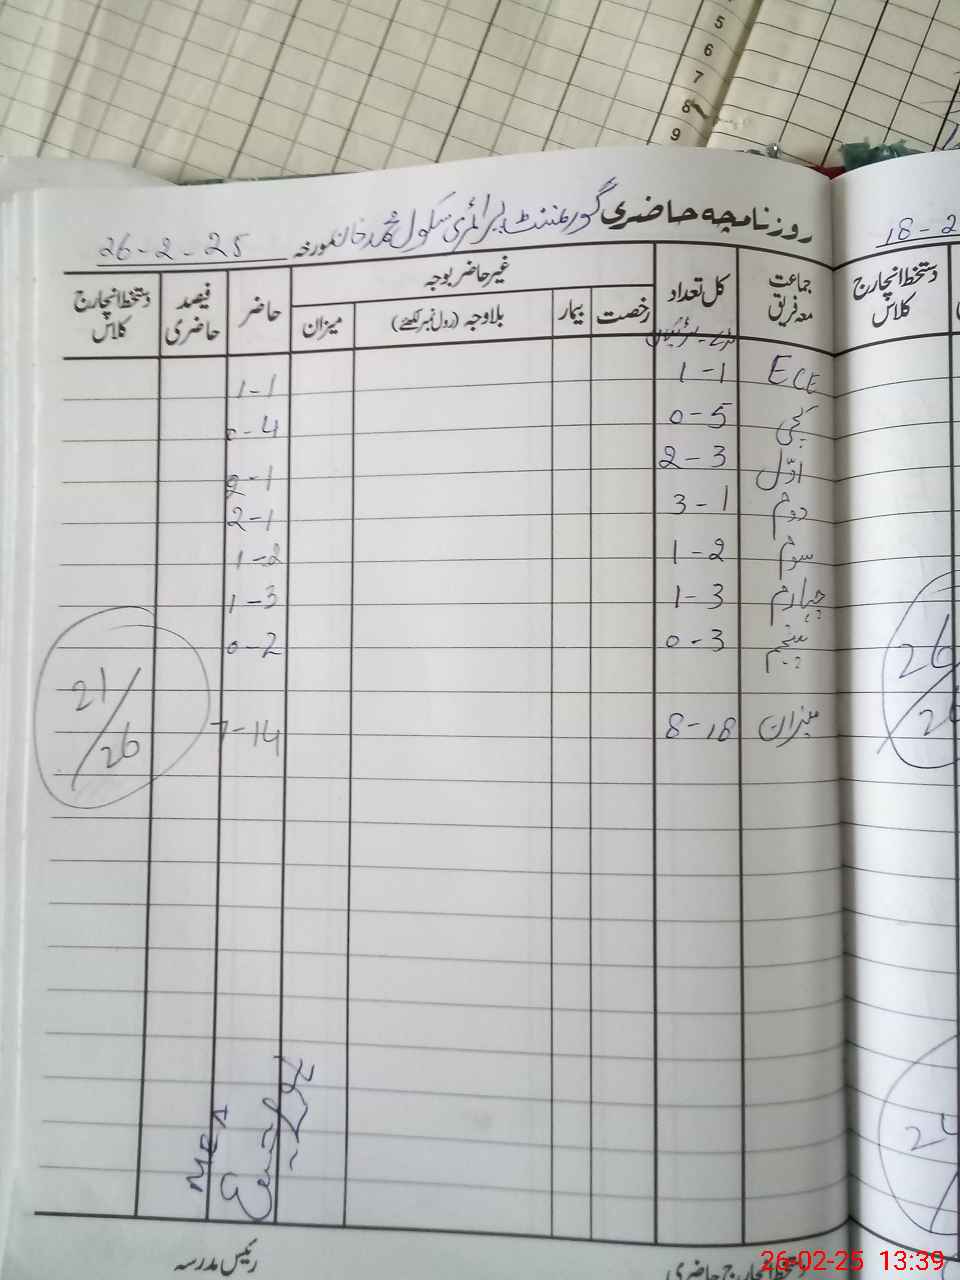 5
6
7
8
9
روزنامچہ حاضری گورنمنٹ پرائمری سکول محمد خان مورخہ 26-2-25
18-2
جماعت معہ فریق کل تعداد غیر حاضر بوجہ حاضر فیصد حاضری دستخط انچارج کلاس
رخصت بیمار بلاوجہ (رول نمبر لکھئے) میزان
دستخط انچارج کلاس
ECE 1-1 1-1
کچی 0-5 0-4
اوّل 2-3 2-1
دوم 3-1 2-1
سوم 1-2 1-2
چہارم 1-3 1-3
پنجم 0-3 0-2
میزان 8-18 7-14
21/26
26
24
MEA
دستخط انچارج حاضری رئیس مدرسہ
26-02-25 13:39